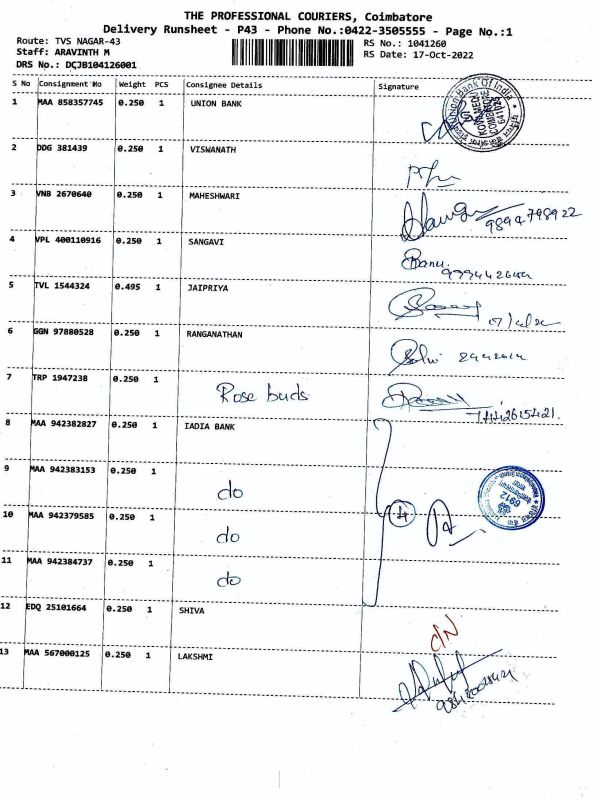 THE PROFESSIONAL COURIERS, Coimbatore
Delivery Runsheet - P43 - Phone No.:0422-3505555 - Page No.:1
Route: TVS NAGAR-43
Staff: ARAVINTH M
DRS No.: DCJB104126001
RS No.: 1041260
RS Date: 17-Oct-2022
S No Consignment No Weight PCS Consignee Details Signature
1 MAA 858357745 0.250 1 UNION BANK
2 DDG 381439 0.250 1 VISWANATH
3 VNB 2670640 0.250 1 MAHESHWARI
9894798922
4 VPL 400110916 0.250 1 SANGAVI
5 TVL 1544324 0.495 1 JAIPRIYA
6 GGN 97880528 0.250 1 RANGANATHAN
7 TRP 1947238 0.250 1 Rose buds
8 MAA 942382827 0.250 1 IADIA BANK
9 MAA 942383153 0.250 1 do
10 MAA 942379585 0.250 1 do
11 MAA 942384737 0.250 1 do
12 EDQ 25101664 0.250 1 SHIVA
13 MAA 567000125 0.250 1 LAKSHMI